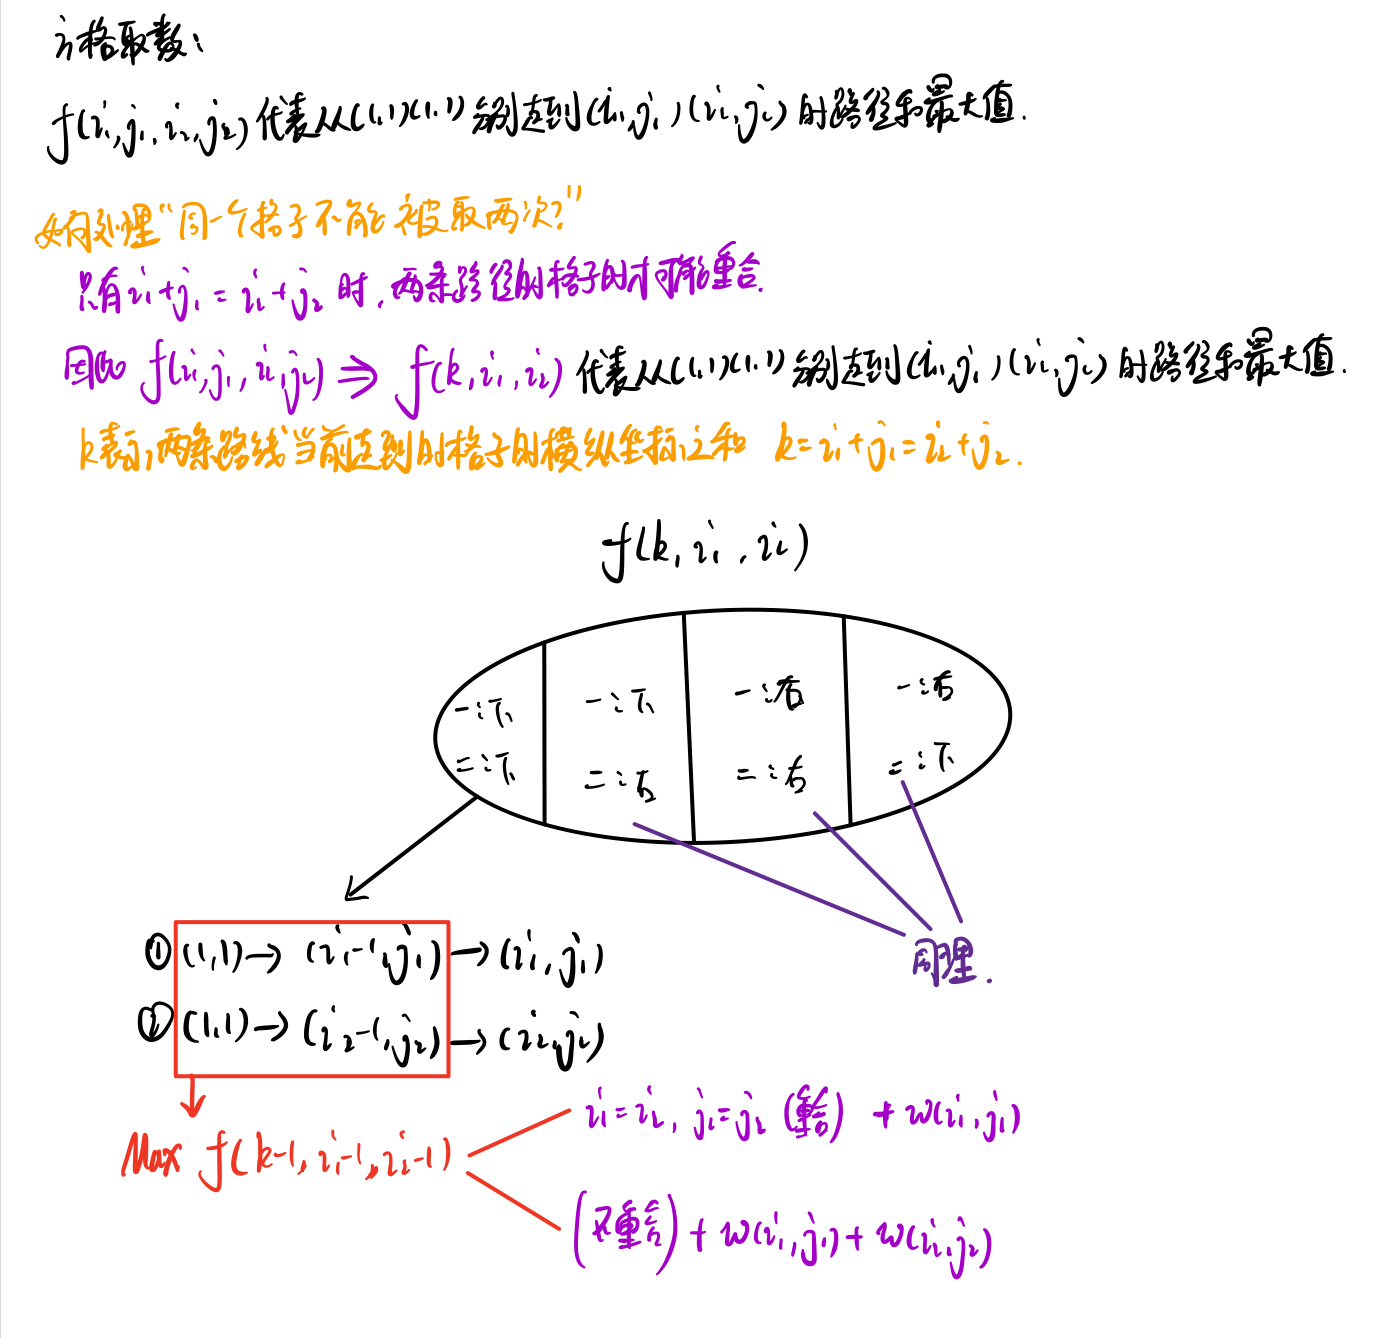 方格取数:
f(i₁,j₁,i₂,j₂)代表从(1,1)(1,1)分别走到(i₁,j₁)(i₂,j₂)时路径和最大值.
如何处理“同一个格子不能被取两次?”
只有i₁+j₁=i₂+j₂时,两条路径的格子的才可能重合.
因此 f(i₁,j₁,i₂,j₂)⇒f(k,i₁,i₂)代表从(1,1)(1,1)分别走到(i₁,j₁)(i₂,j₂)时路径和最大值.
k表示两条路线当前走到的格子的横纵坐标之和 k=i₁+j₁=i₂+j₂.
f(k,i₁,i₂)
一:下 一:下 一:右 一:右
二:下 二:右 二:右 二:下
① (1,1)→(i₁-1,j₁)→(i₁,j₁)
同理.
② (1,1)→(i₂-1,j₂)→(i₂,j₂)
i₁=i₂,j₁=j₂(重合) +w(i₁,j₁)
Max f(k-1,i₁-1,i₂-1)
(不重合)+w(i₁,j₁)+w(i₂,j₂)